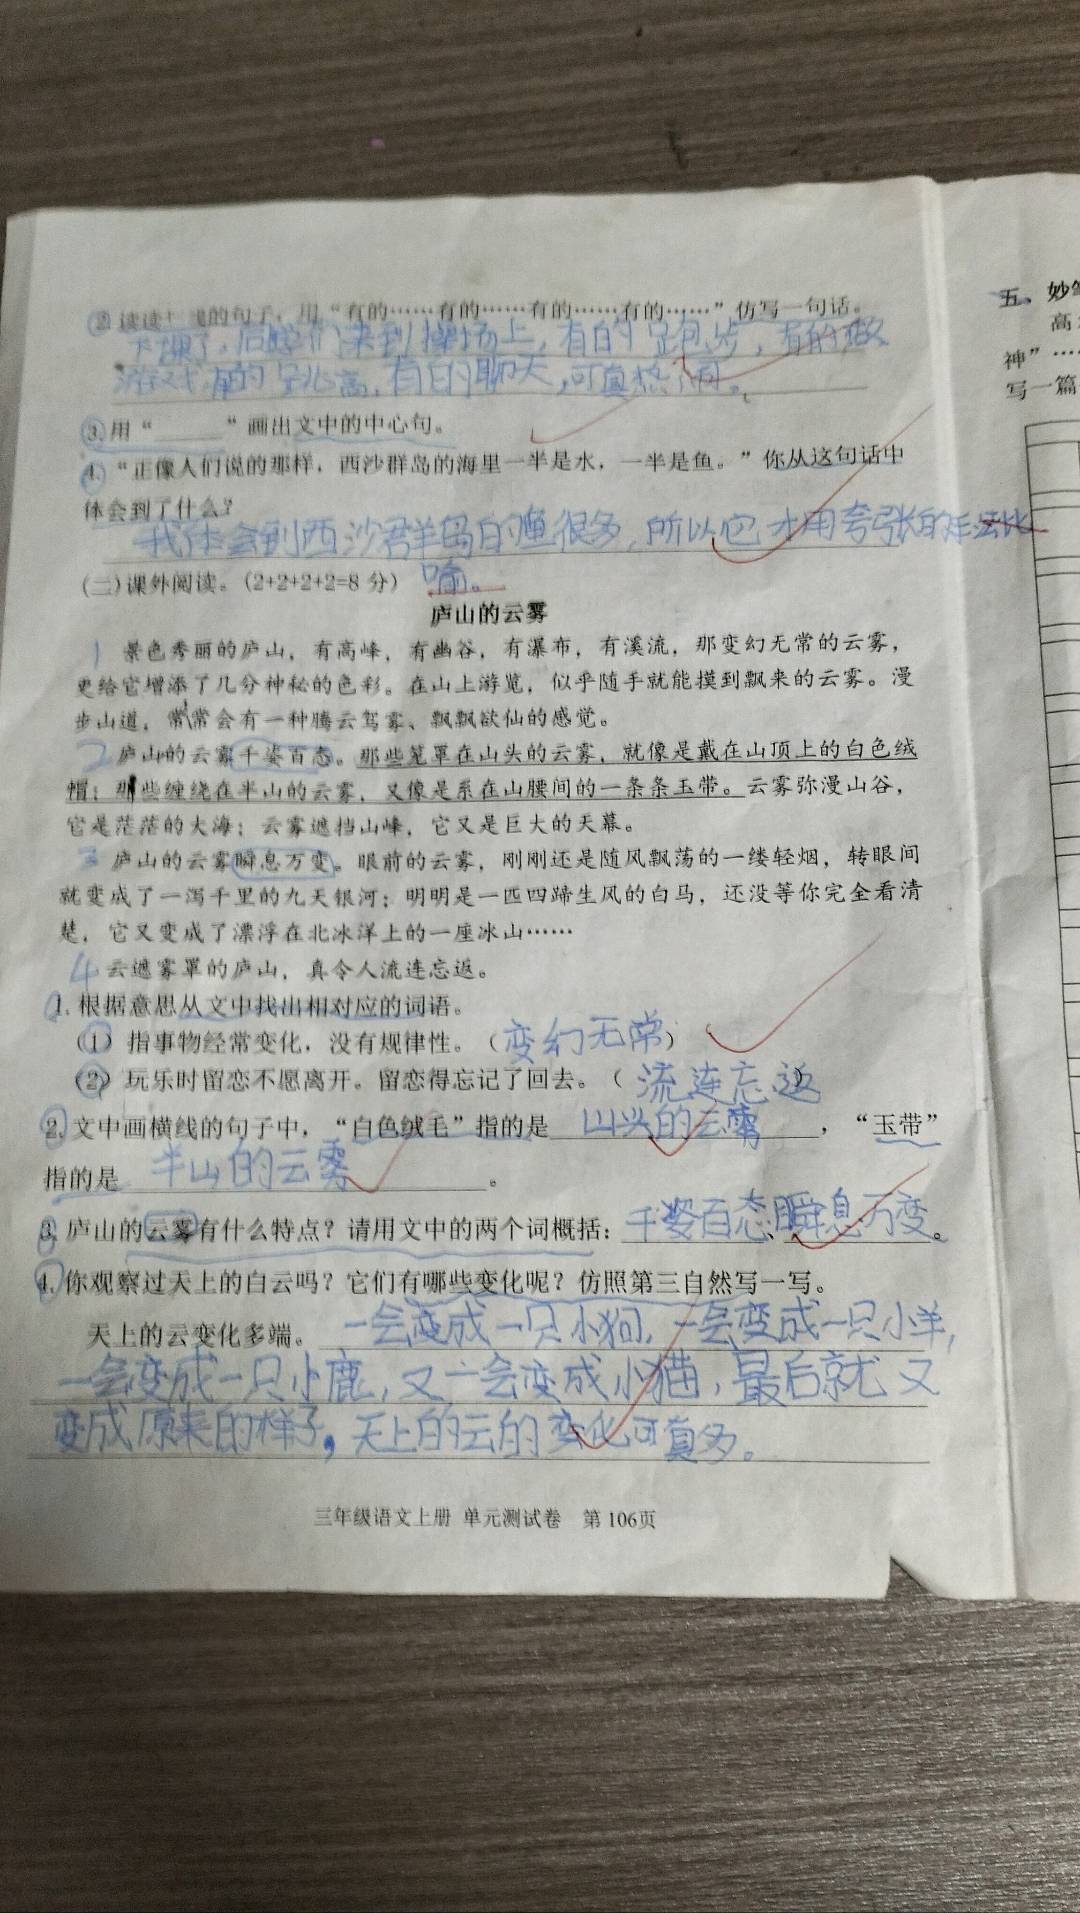 ② 读读 线的句子，用“有的……有的……有的……有的……”仿写一句话。
下课了，同学们来到操场上，有的 跑步，有的做
游戏 有的 跳高，有的聊天，可真热闹。
③.用“______”画出文中的中心句。
4.“正像人们说的那样，西沙群岛的海里一半是水，一半是鱼。”你从这句话中
体会到了什么？
我体会到西沙群岛的鱼很多，所以它才用夸张的手法比
喻。
(二)课外阅读。(2+2+2+2=8 分)
庐山的云雾
1 景色秀丽的庐山，有高峰，有幽谷，有瀑布，有溪流，那变幻无常的云雾，
更给它增添了几分神秘的色彩。在山上游览，似乎随手就能摸到飘来的云雾。漫
步山道，常常会有一种腾云驾雾、飘飘欲仙的感觉。
2 庐山的云雾千姿百态。那些笼罩在山头的云雾，就像是戴在山顶上的白色绒
帽；那些缠绕在半山的云雾，又像是系在山腰间的一条条玉带。云雾弥漫山谷，
它是茫茫的大海；云雾遮挡山峰，它又是巨大的天幕。
3 庐山的云雾瞬息万变。眼前的云雾，刚刚还是随风飘荡的一缕轻烟，转眼间
就变成了一泻千里的九天银河；明明是一匹四蹄生风的白马，还没等你完全看清
楚，它又变成了漂浮在北冰洋上的一座冰山……
4 云遮雾罩的庐山，真令人流连忘返。
1.根据意思从文中找出相对应的词语。
(1) 指事物经常变化，没有规律性。（变幻无常）
(2) 玩乐时留恋不愿离开。留恋得忘记了回去。（流连忘返）
2.文中画横线的句子中，“白色绒毛”指的是 山头的云雾 ，“玉带”
指的是 半山的云雾 。
3.庐山的云雾有什么特点？请用文中的两个词概括：千姿百态、瞬息万变。
4.你观察过天上的白云吗？它们有哪些变化呢？仿照第三自然写一写。
天上的云变化多端。一会变成一只小狗，一会变成一只小羊，
一会变成一只小鹿，又一会变成小猫，最后就又
变成原来的样子，天上的云的变化可真多。
三年级语文上册 单元测试卷 第106页
五、妙笔
高
神”……
写一篇